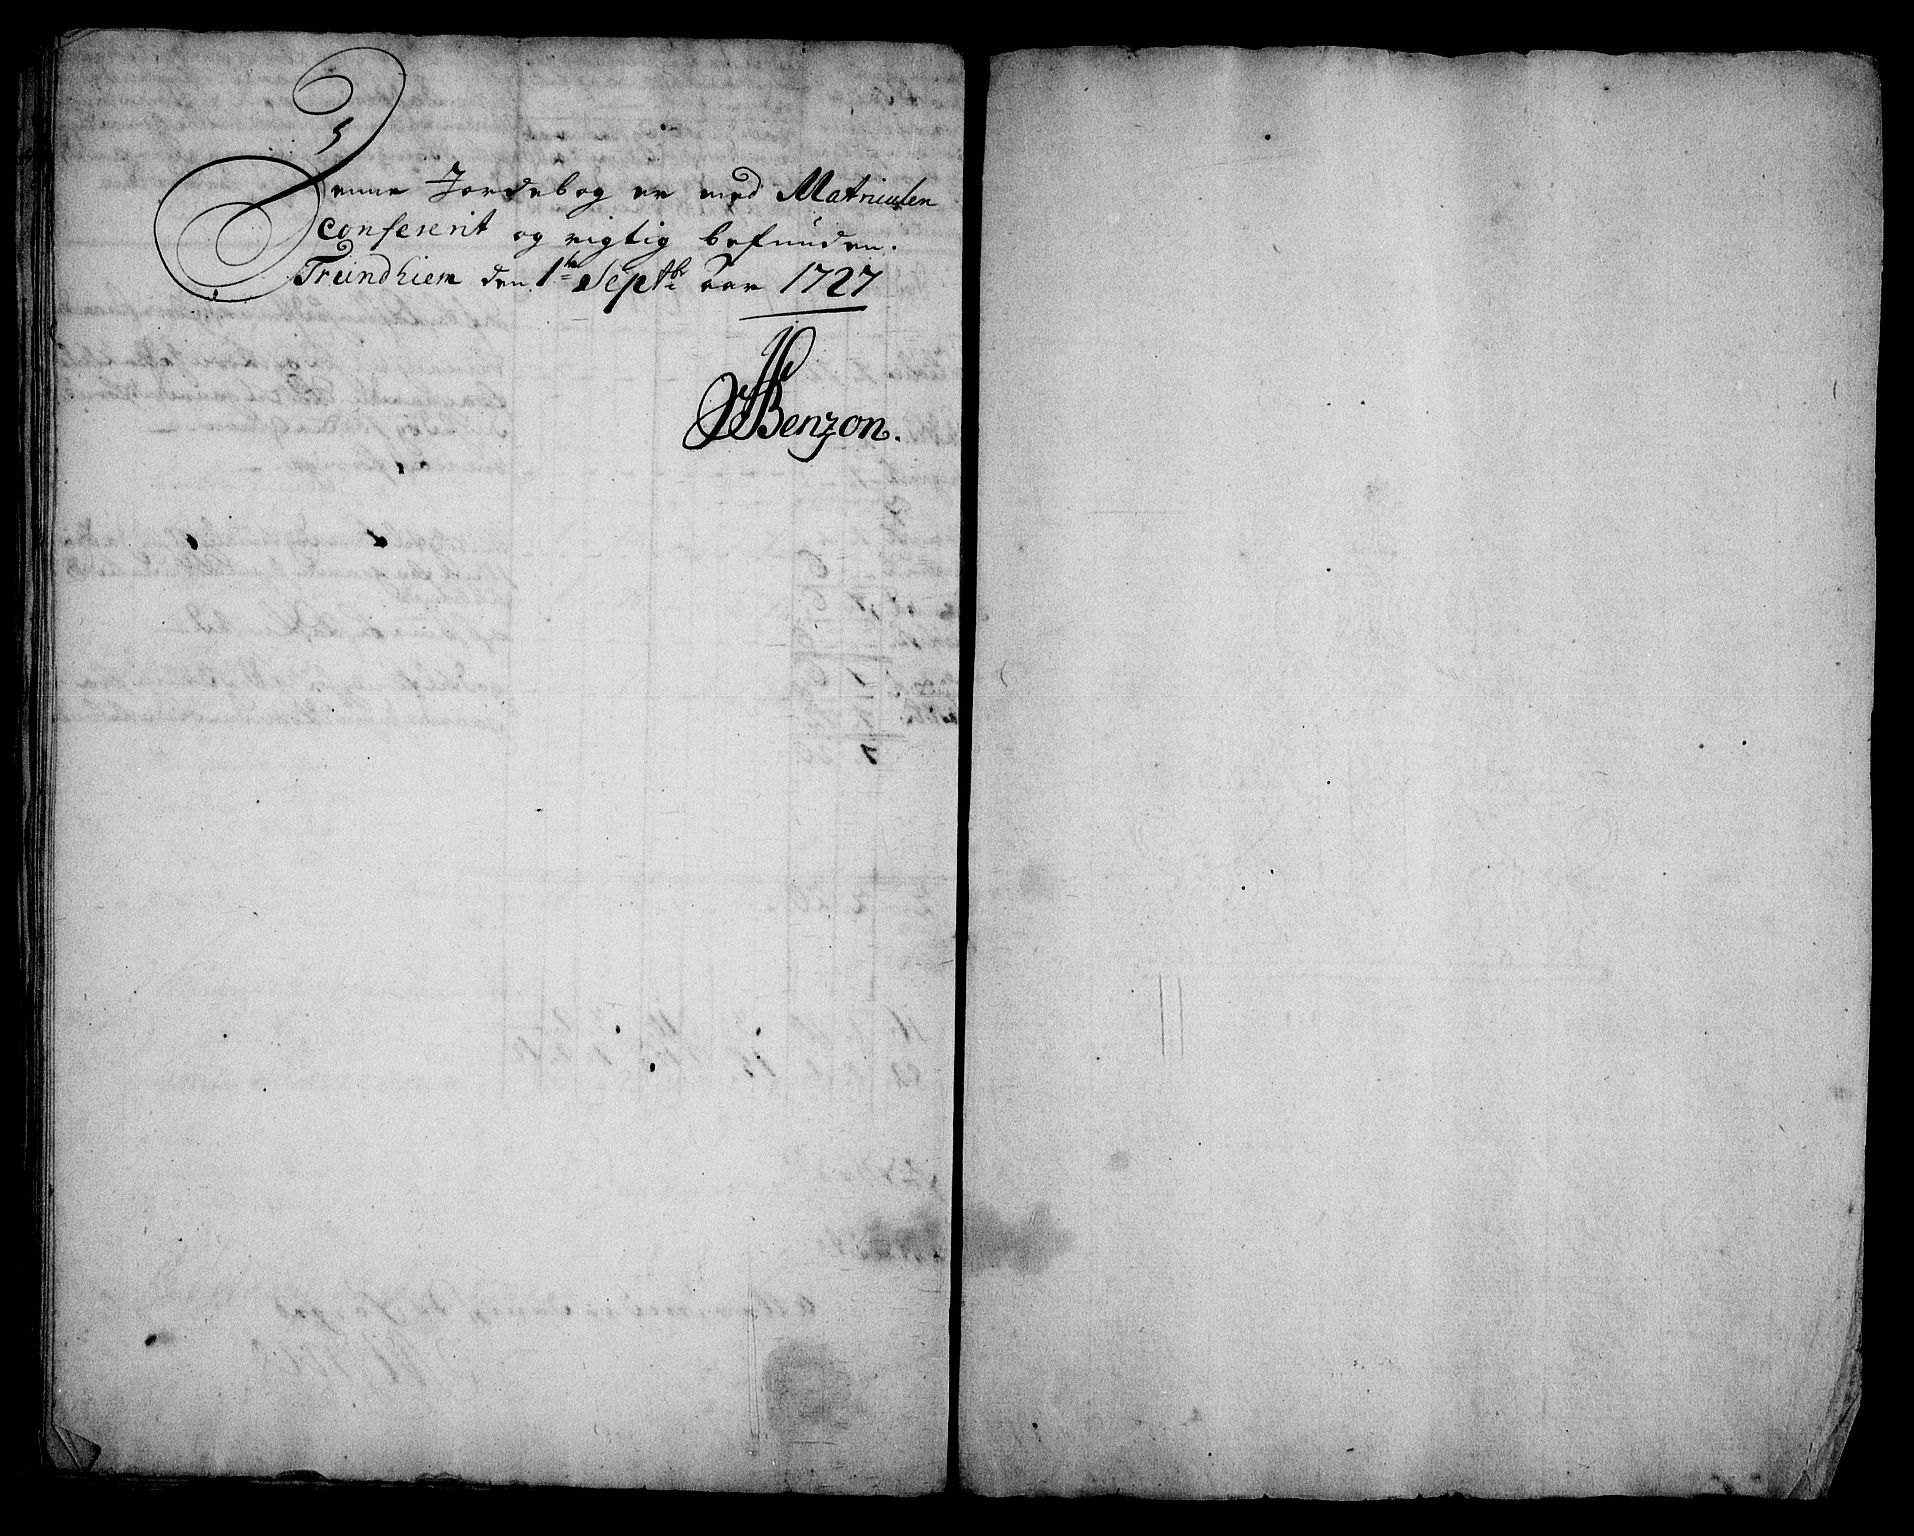 Denne Jordebog er med Matriculen
conferert og rigtig befunden.
Trundhiem den 1te Septbr Aar 1727
Benzon.